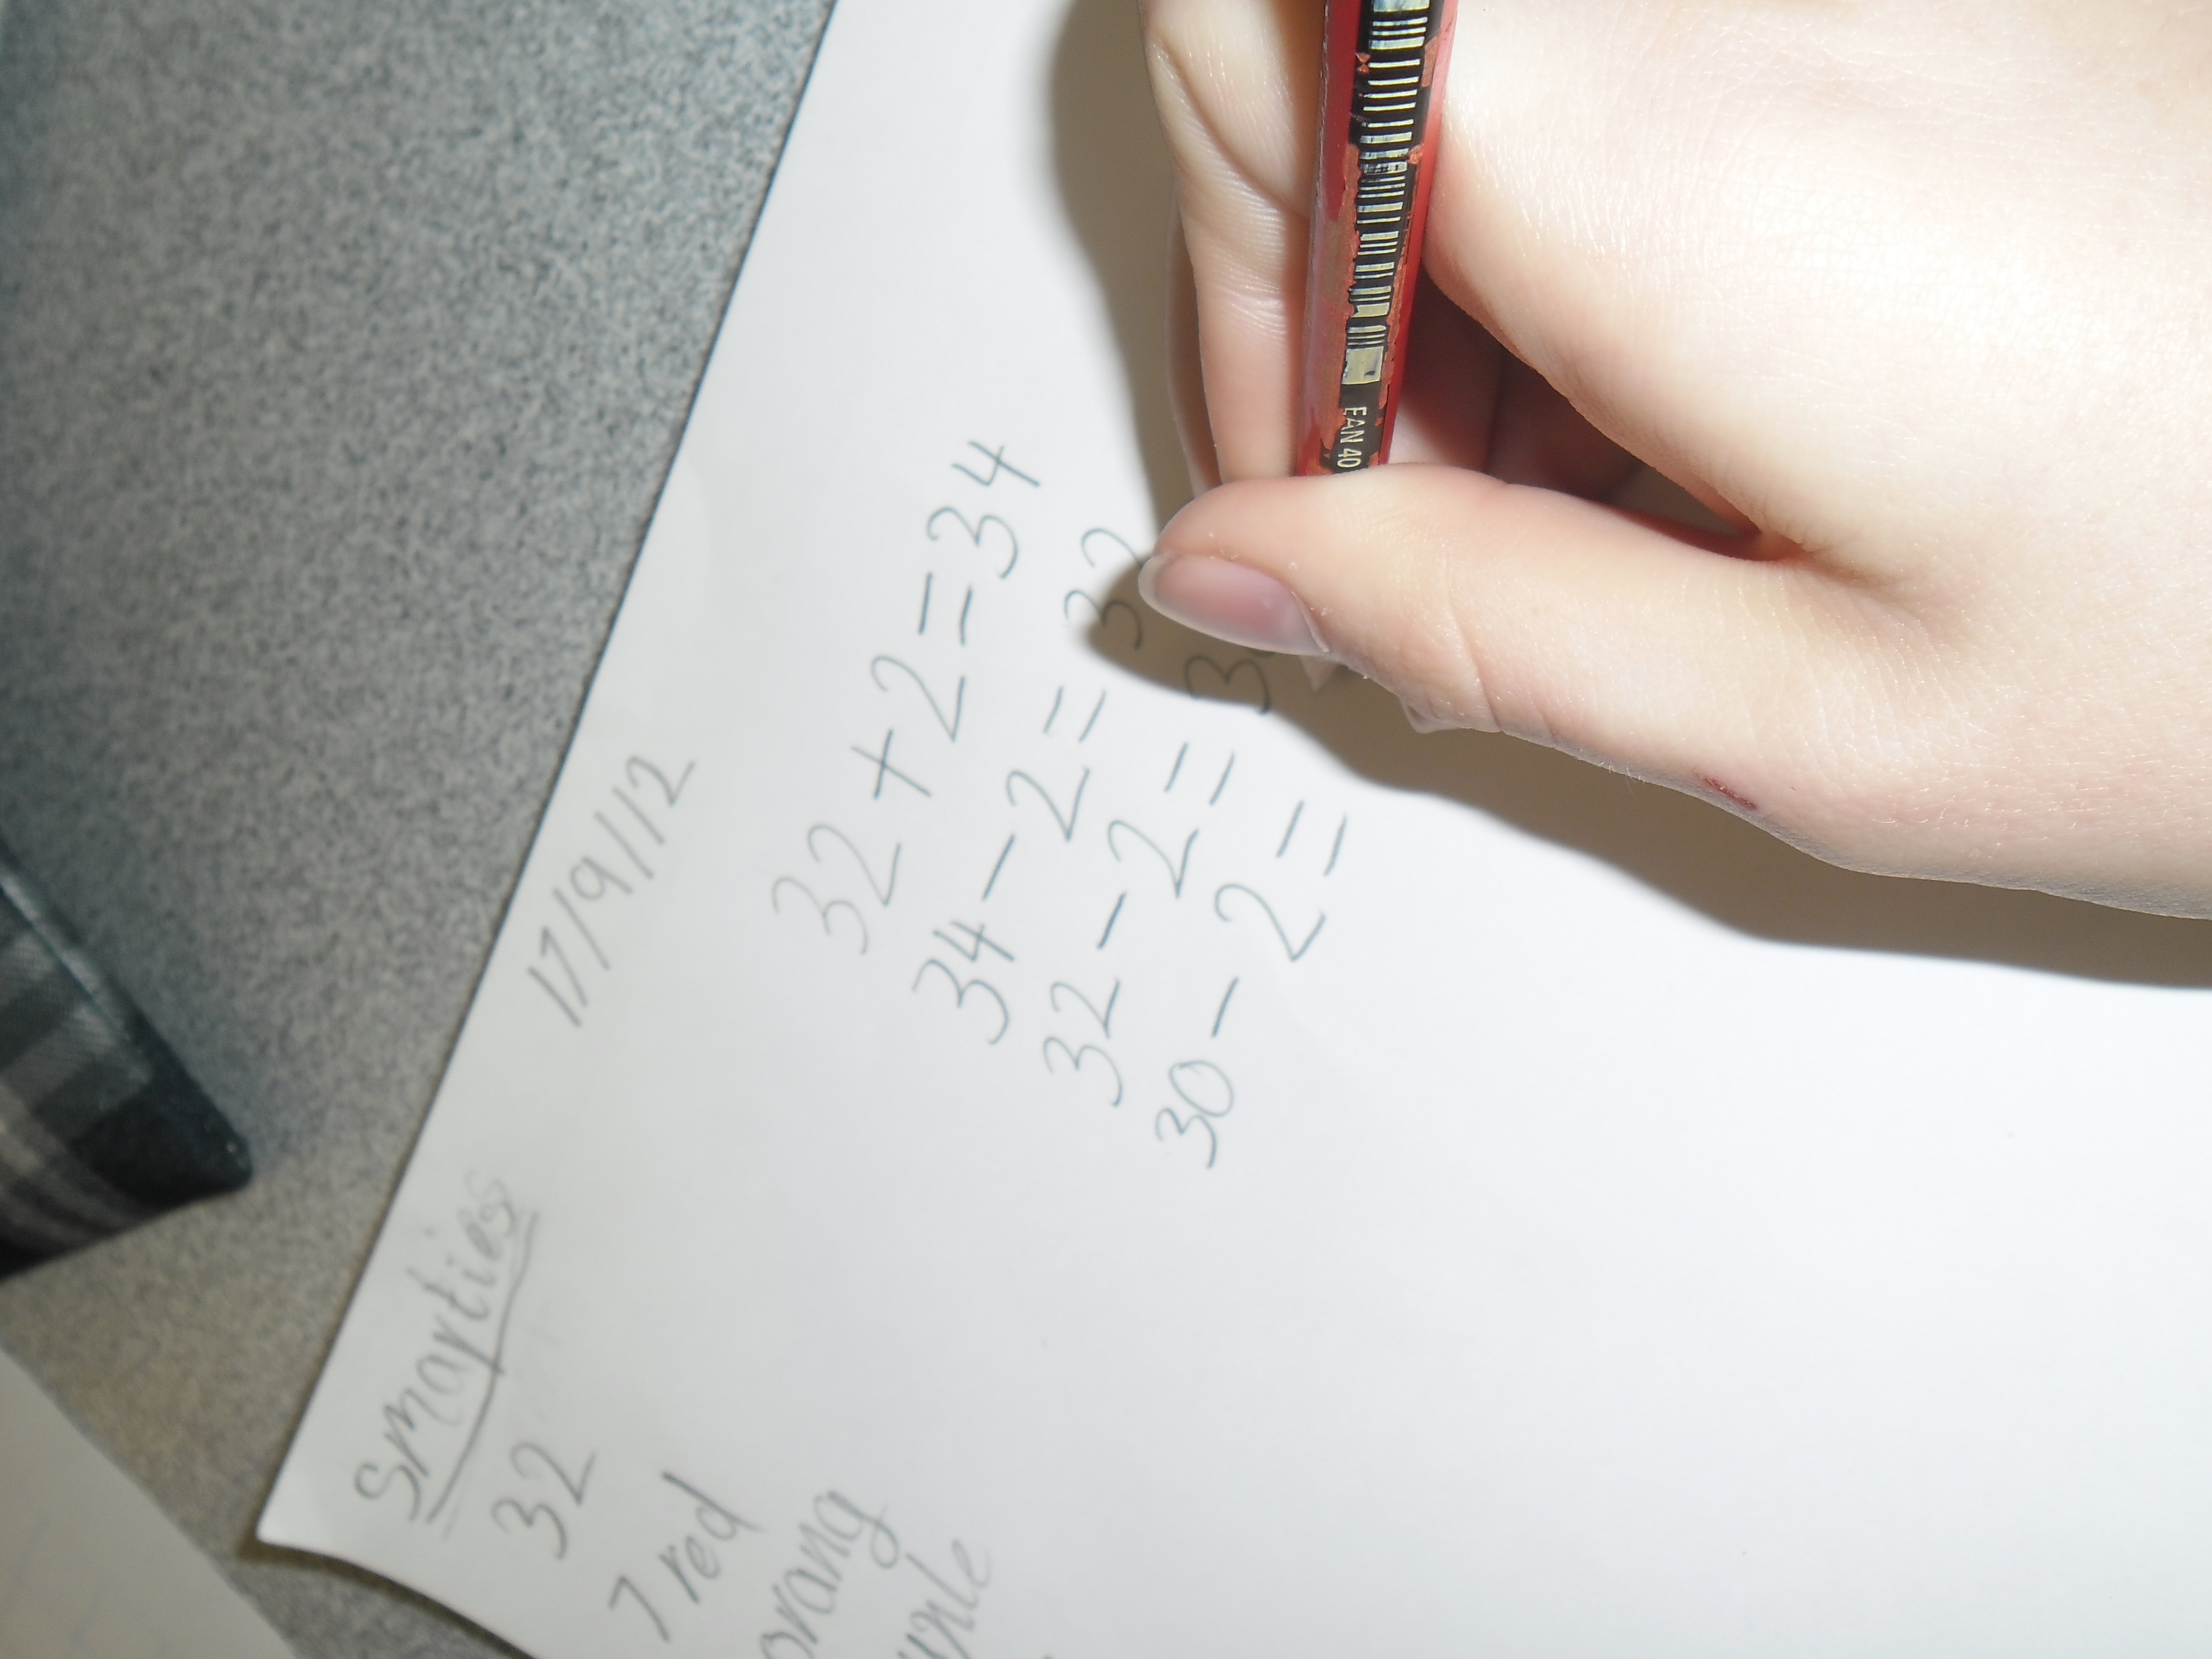 17/9/12
Smarties
32
7 red
orang
32 + 2 = 34
34 - 2 = 32
32 - 2 = 3
30 - 2 =
EAN 40